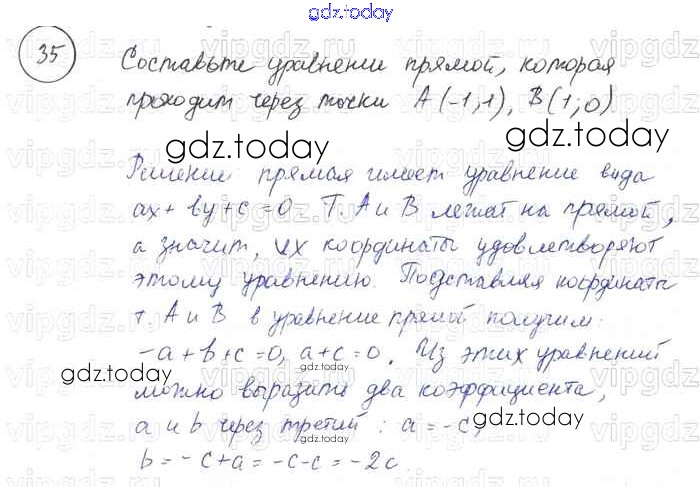 gdz.today
35
Составьте уравнение прямой, которая
проходит через точки A(-1;1), B(1;0)
gdz.today
gdz.today
Решение: прямая имеет уравнение вида
ax+by+c=0. Т. A и B лежат на прямой,
а значит, их координаты удовлетворяют
этому уравнению. Подставляя координаты
т. A и B в уравнение прямой получим:
-a+b+c=0, a+c=0. Из этих уравнений
gdz.today
можно выразить два коэффициента,
gdz.today
a и b через третий: a=-c,
gdz.today
b=-c+a=-c-c=-2c.